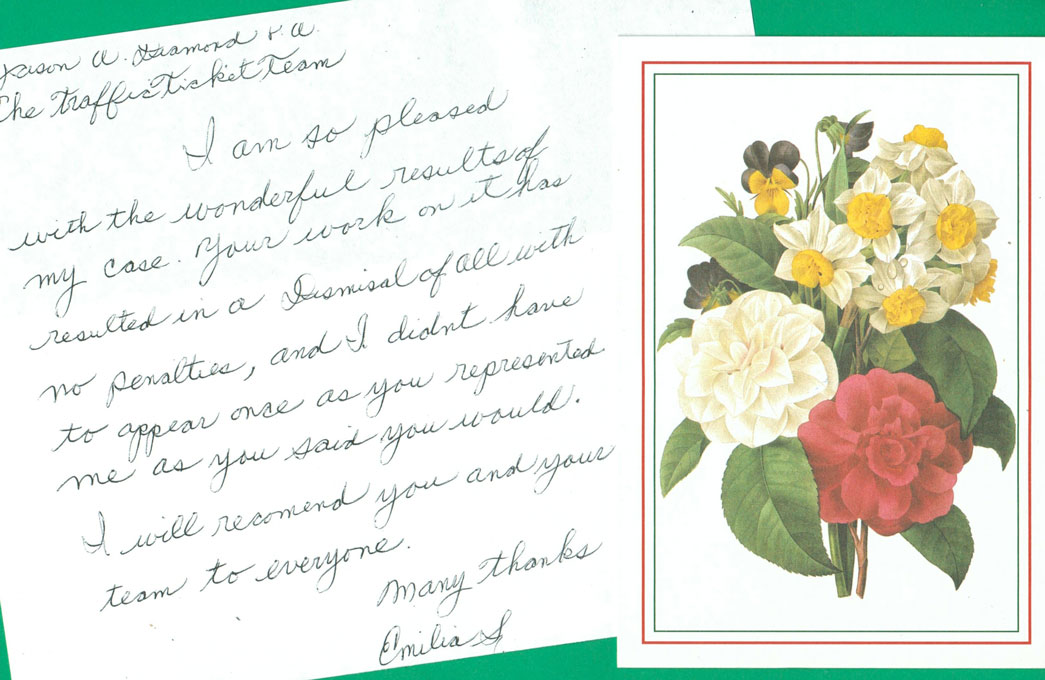 Jason A. Diamond P.A.
The Traffic Ticket Team
I am so pleased
with the wonderful results of
my case. Your work on it has
resulted in a Dismisal of all with
no penalties, and I didnt have
to appear once as you represented
me as you said you would.
I will recomend you and your
team to everyone.
Many thanks
Emilia S